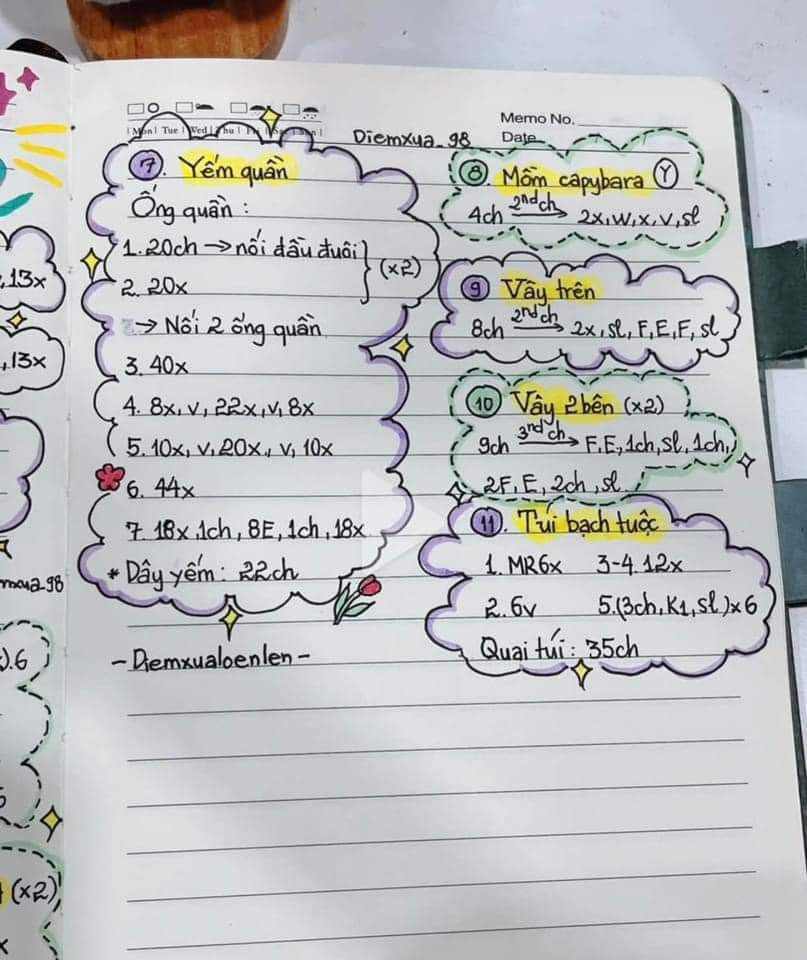 Memo No.
Mon Tue Wed Thu Fri Sat Sun
Date
Diemxua_98
7. Yếm quần
Ống quần :
1. 20ch → nối đầu đuôi
2. 20x
(x2)
→ Nối 2 ống quần
3. 40x
4. 8x, v, 22x, v, 8x
5. 10x, v, 20x, v, 10x
6. 44x
7. 18x, 1ch, 8E, 1ch, 18x
* Dây yếm : 22ch
- Diemxualoenlen -
8. Mồm capybara Y
4ch 2nd ch → 2x, w, x, v, sl
9 Vây trên
8ch 2nd ch → 2x, sl, F, E, F, sl
10 Vây 2 bên (x2)
9ch 3nd ch → F, E, 1ch, sl, 1ch,
2F, E, 2ch, sl
11. Túi bạch tuộc
1. MR6x 3-4. 12x
2. 6v 5. (3ch, K1, sl) x 6
Quai túi : 35ch
, 13x
, 13x
mxua_98
).6
(x2)
x